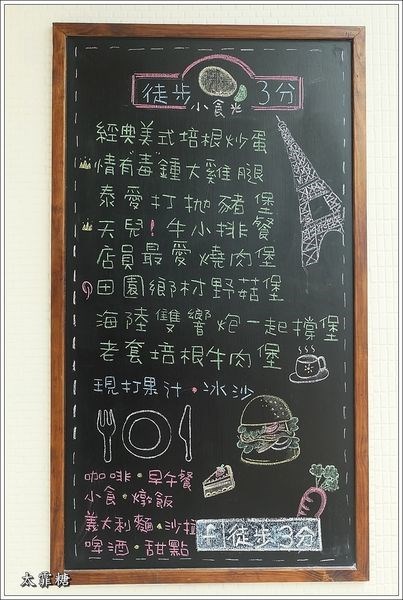 徒步 小食光 3分
經典美式培根炒蛋
情有"毒"鍾大雞腿
泰愛打拋豬堡
天兒!牛小排餐
店員最愛燒肉堡
田園鄉村野菇堡
海陸雙響炮一起撐堡
老套培根牛肉堡
現打果汁·冰沙
咖啡·早午餐
小食·燉飯
義大利麵·沙拉
啤酒·甜點
徒步3分
太霏糖